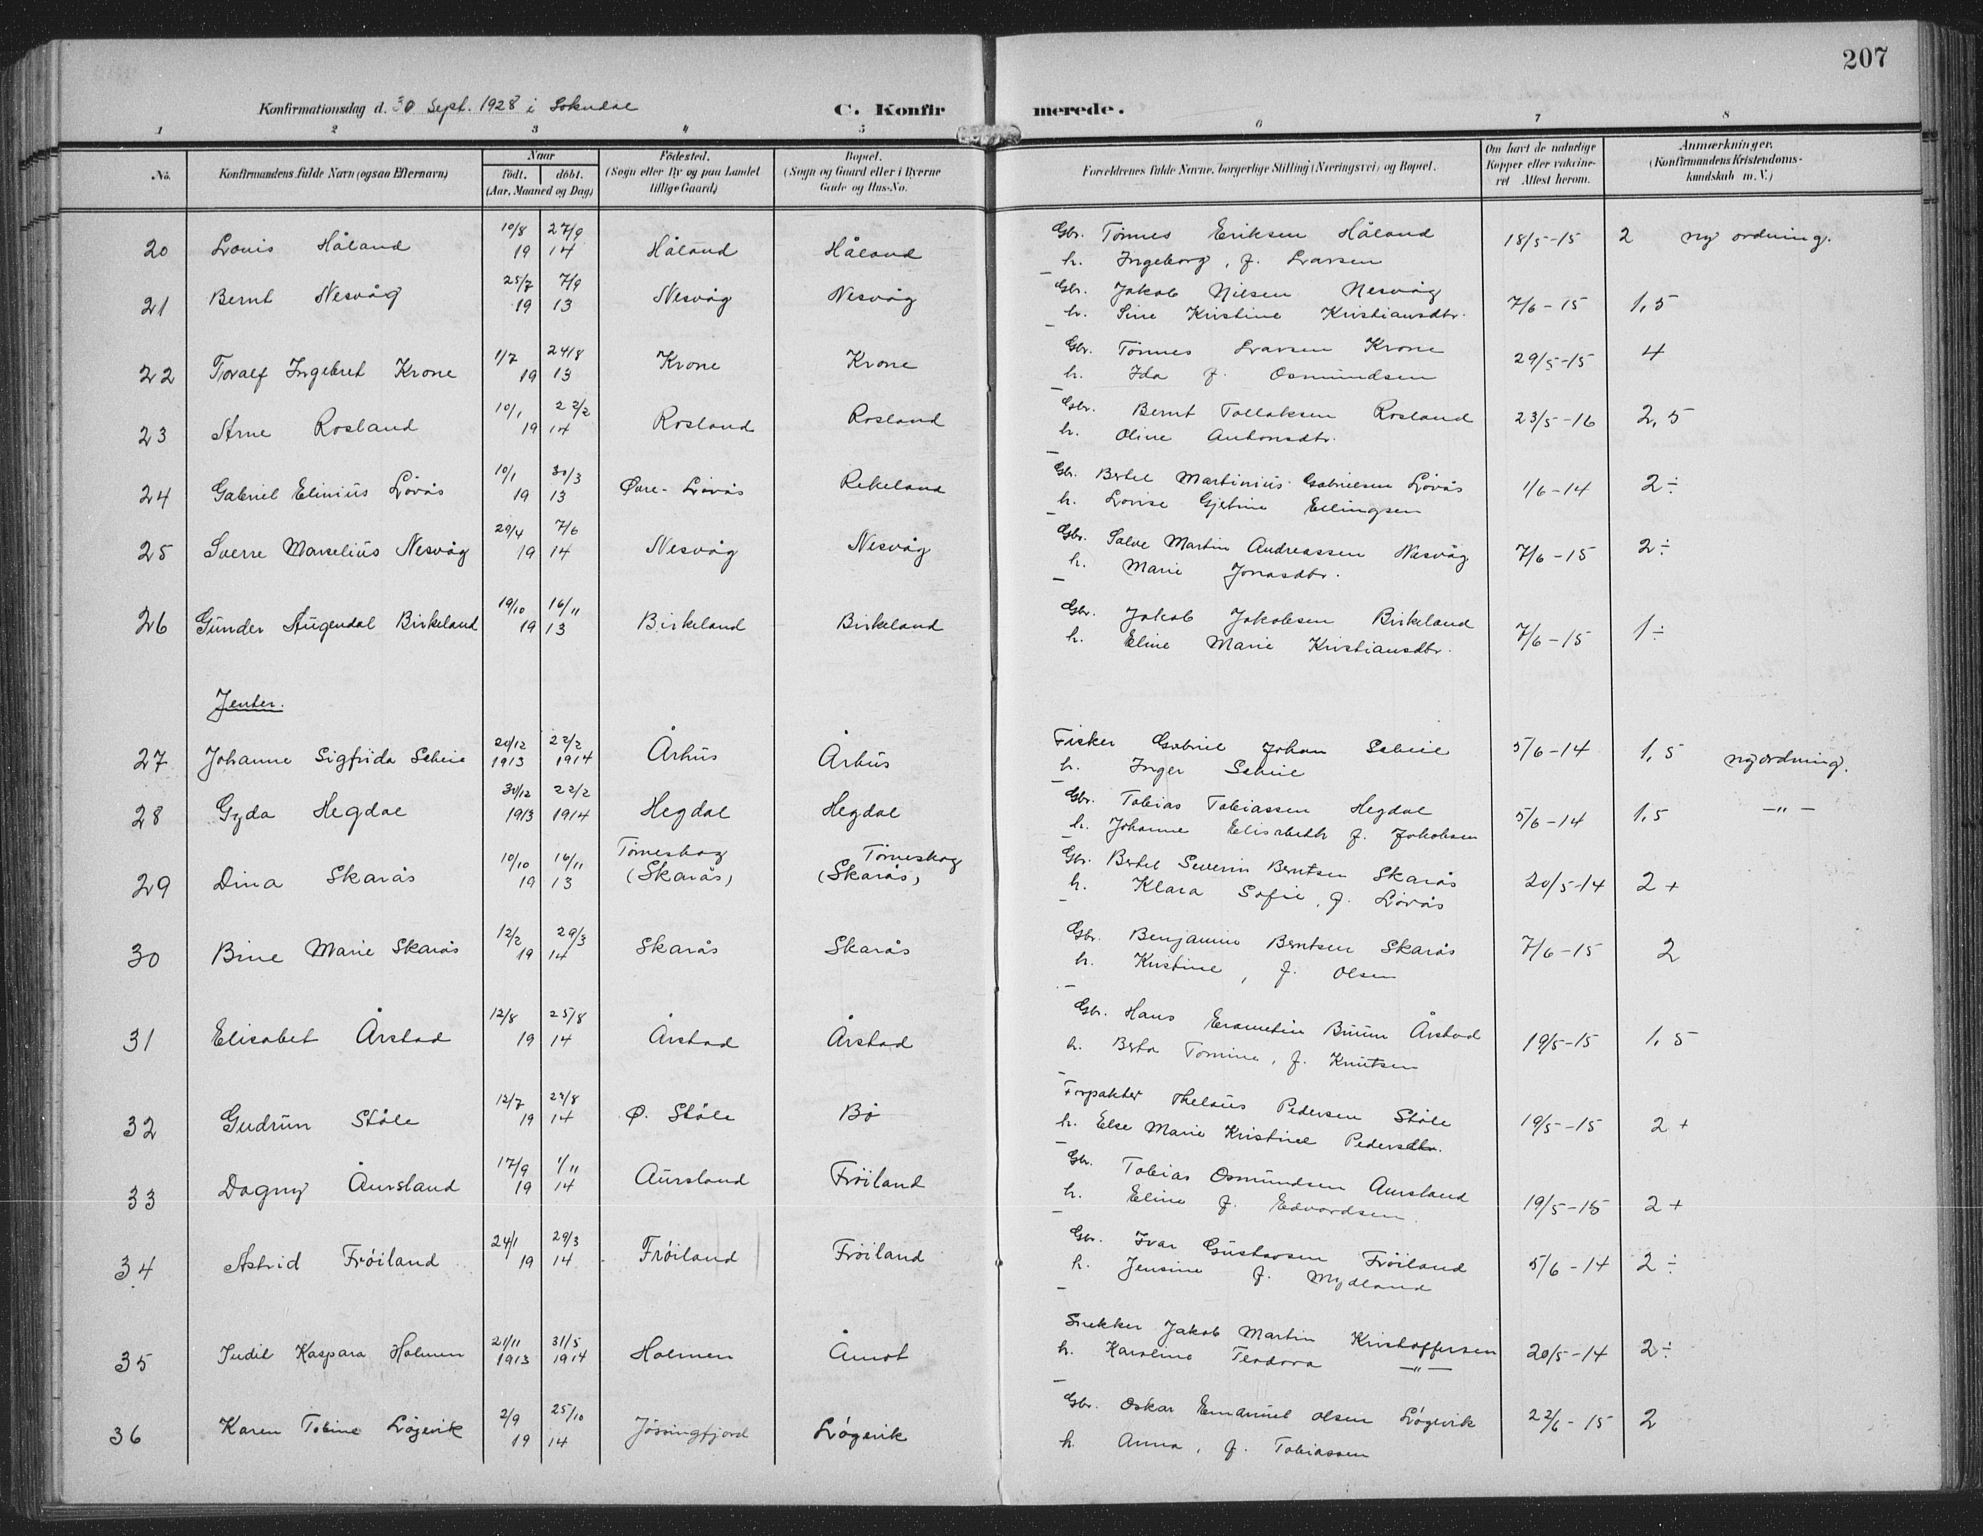 207
Konfirmationsdag d. 30 Sept. 1928 i Sokndal C. Konfirmerede.
1 2 3 4 5 6 7 8
No. Konfirmandens fulde Navn (ogsaa Efternavn) Naar født. døbt. (Aar, Maaned og Dag) Fødested. (Sogn eller By og paa Landet tillige Gaard) Bopæl. (Sogn og Gaard eller i Byerne Gade og Hus-No. Forældrenes fulde Navne, borgerlige Stilling (Næringsvei) og Bopæl. Om havt de naturlige Kopper eller vaccineret Attest herom. Anmærkninger. (Konfirmandens Kristendomskundskab m. V.)
20 Louis Håland 10/8 19 27/9 14 Håland Håland Gbr. Tønnes Eriksen Håland 18/5-15 2 ny ordning.
h. Ingeborg, f. Larsen
21 Bernt Nesvåg 25/7 19 7/9 13 Nesvåg Nesvåg Gbr. Jakob Nilsen Nesvåg 7/6-15 1,5
h. Sine Kristine Kristiansdtr.
22 Toralf Ingebret Krone 1/7 19 24/8 13 Krone Krone Gbr. Tønnes Larsen Krone 29/5-15 4
h. Ida f. Osmundsen
23 Arne Rosland 10/1 19 22/2 14 Rosland Rosland Gbr. Bernt Tollaksen Rosland 23/5-16 2,5
h. Oline Antonsdtr.
24 Gabriel Elinius Løvås 10/1 19 30/3 13 Øvre-Løvås Rekeland Gbr. Bertel Martinius Gabrielsen Løvås 1/6-14 2÷
h. Lovise Gjetine Ellingsen
25 Sverre Marselius Nesvåg 29/4 19 7/6 14 Nesvåg Nesvåg Gbr. Salve Martin Andreassen Nesvåg 7/6-15 2÷
h. Marie Jonasdtr.
26 Gunder Augendal Birkeland 19/10 19 16/11 13 Birkeland Birkeland Gbr. Jakob Jakobsen Birkeland 7/6-15 1÷
h. Eline Marie Kristiansdtr.
Jenter.
27 Johanne Sigfrida Scheie 20/12 1913 22/2 1914 Århus Århus Fisker Gabriel Johan Scheie 5/6-14 1,5 ny ordning.
h. Inger Scheie
28 Gyda Hegdal 30/12 1913 22/2 1914 Hegdal Hegdal Gbr. Tobias Tobiassen Hegdal 5/6-14 1,5 -"-
h. Johanne Elisabeth f. Jakobsen
29 Dina Skarås 10/10 19 16/11 13 Tørneskog (Skarås) Tørneskog (Skarås) Gbr. Bertel Severin Berntsen Skarås 20/5-14 2+
h. Klara Sofie, f. Løvås
30 Bine Marie Skarås 12/2 19 29/3 14 Skarås Skarås Gbr. Benjamin Berntsen Skarås 7/6-15 2
h. Kristine, f. Olsen
31 Elisabet Årstad 12/8 19 25/8 14 Årstad Årstad Gbr. Hans Bruun Årstad 19/5-15 1,5
h. Berta Tomine, f. Knutsen
32 Gudrun Ståle 12/7 19 22/8 14 Ø. Ståle Bø Forpakter Thelaus Pedersen Ståle 19/5-15 2+
h. Else Marie Kristine Pedersdtr.
33 Dagny Åursland 17/9 19 1/11 14 Aursland Frøiland Gbr. Tobias Osmundsen Aursland 19/5-15 2+
h. Eline f. Edvardsen.
34 Astrid Frøiland 24/1 19 29/3 14 Frøiland Frøiland Gbr. Ivar Gustavsen Frøiland 5/6-14 2÷
h. Jensine f. Mydland
35 Judit Kaspara Holmen 21/11 1913 31/5 1914 Holmen Åmot Snekker Jakob Martin Kristoffersen 20/5-14 2÷
h. Karoline Teodora -"-
36 Karen Tobine Løgevik 2/9 19 25/10 14 Jøssingfjord Løgevik Gbr. Oskar Emanuel Olsen Løgevik 22/6-15 2
h. Anna, f. Tobiassen